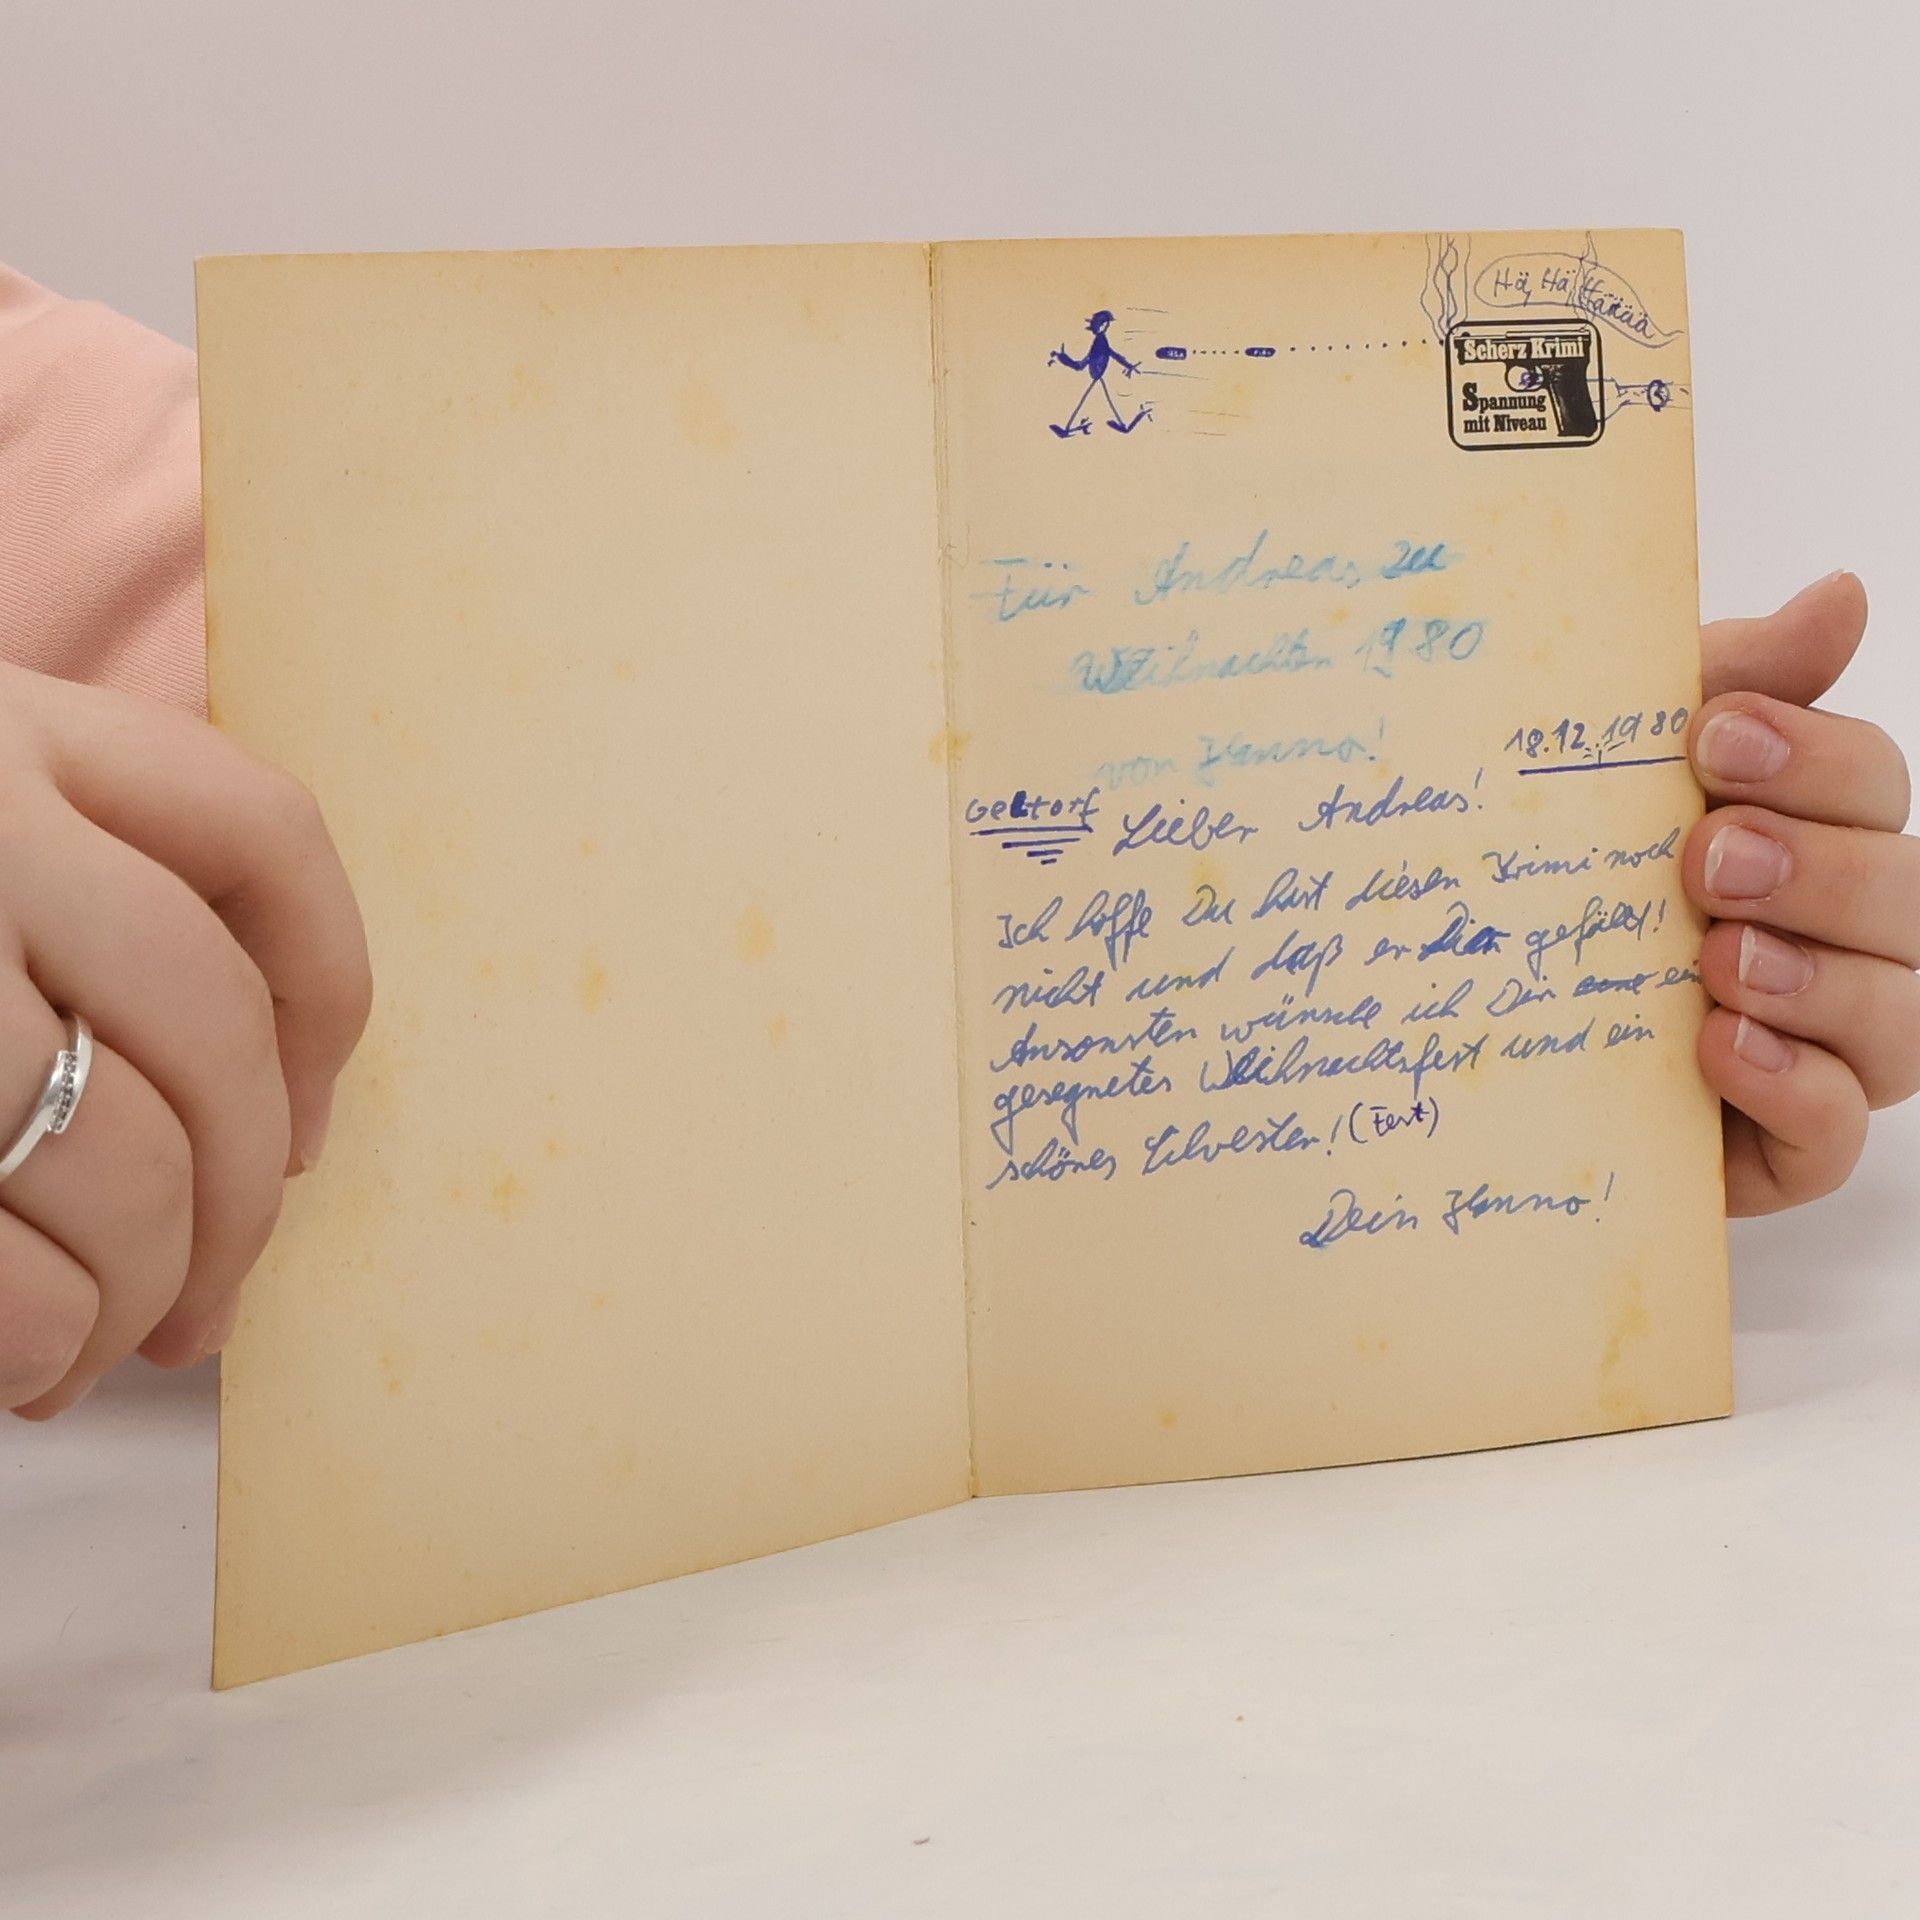 Hä, Hä, Hääää
Scherz Krimi
Spannung
mit Niveau
Für Andreas zu
Weihnachten 1980
von Hanno!
18.12.1980
Gettorf
Lieber Andreas!
Ich hoffe Du hast diesen Krimi noch
nicht und daß er Dir gefällt!
Ansonsten wünsche ich Dir ein
gesegnetes Weihnachtsfest und ein
schönes Silvester! (Fest)
Dein Hanno!